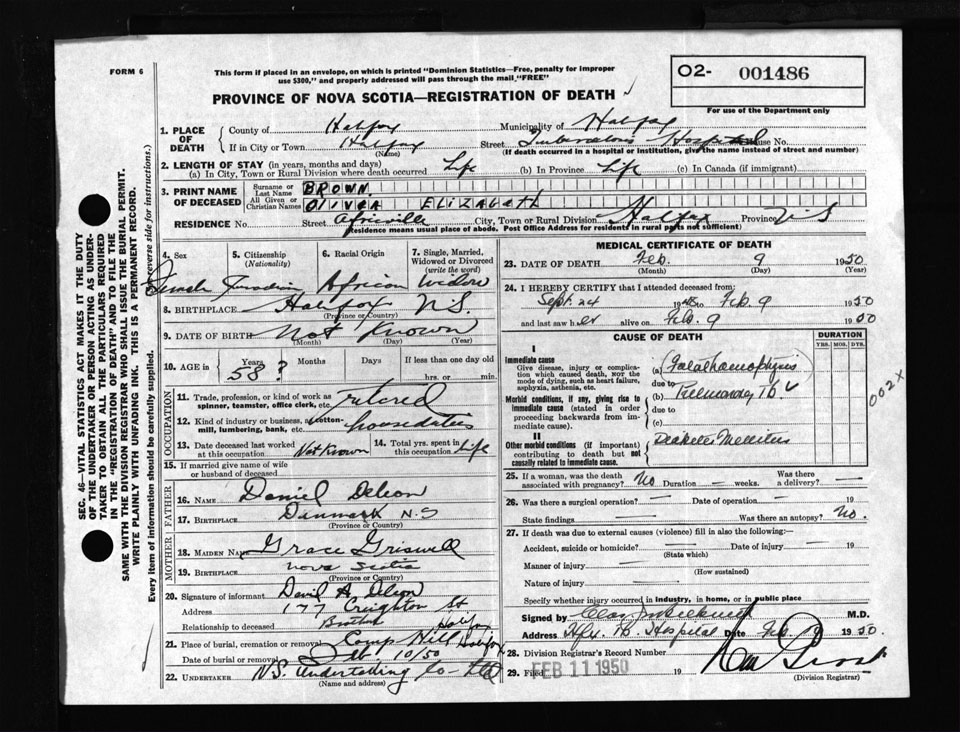 FORM 6
This form if placed in an envelope, on which is printed "Dominion Statistics—Free, penalty for improper
use $300," and properly addressed will pass through the mail, "FREE"
O2- 001486
For use of the Department only
PROVINCE OF NOVA SCOTIA—REGISTRATION OF DEATH
1. PLACE OF DEATH
County of Halifax Municipality of Halifax
If in City or Town Halifax (Name) Street Tuberculosis Hospital House No.
(If death occurred in a hospital or institution, give the name instead of street and number)
2. LENGTH OF STAY (in years, months and days)
(a) In City, Town or Rural Division where death occurred Life (b) In Province Life (c) In Canada (if immigrant)
3. PRINT NAME OF DECEASED
Surname or Last Name BROWN.
All Given or Christian Names OliVEr ElizAbEth
RESIDENCE No. Street Africville City, Town or Rural Division Halifax Province N S
(Residence means usual place of abode. Post Office Address for residents in rural parts not sufficient)
4. Sex 5. Citizenship (Nationality) 6. Racial Origin 7. Single, Married, Widowed or Divorced (write the word)
Female Canadian African Widow
8. BIRTHPLACE Halifax N.S.
(Province or Country)
9. DATE OF BIRTH Not Known
(Month) (Day) (Year)
10. AGE in Years Months Days If less than one day old
58? hrs. or min.
OCCUPATION
11. Trade, profession or kind of work as spinner, teamster, office clerk, etc. retired
12. Kind of industry or business, as cotton-mill, lumbering, bank, etc. house duties
13. Date deceased last worked at this occupation Not Known 14. Total yrs. spent in this occupation Life
15. If married give name of wife or husband of deceased
FATHER
16. NAME Daniel Deleon
17. BIRTHPLACE Danmark N.S
(Province or Country)
MOTHER
18. MAIDEN NAME Grace Griswell
19. BIRTHPLACE Nova Scotia
(Province or Country)
20. Signature of informant David A Deleon
Address 177 Creighton St
Relationship to deceased Brother Halifax
21. Place of burial, cremation or removal Camp Hill Halifax
Date of burial or removal Feb 10/50
22. UNDERTAKER N.S. Undertaking Co. Ltd
(Name and address)
MEDICAL CERTIFICATE OF DEATH
23. DATE OF DEATH Feb. 9 1950
(Month) (Day) (Year)
24. I HEREBY CERTIFY that I attended deceased from:
Sept. 24 1948 to Feb 9 1950
and last saw her alive on Feb. 9 1950
CAUSE OF DEATH
DURATION
YRS. MOS. DYS.
I
Immediate cause
Give disease, injury or complication which caused death, NOT the mode of dying, such as heart failure, asphyxia, asthenia, etc.
(a) Fatal haemophysis
due to
(b) Pulmonary TB
002X
Morbid conditions, if any, giving rise to immediate cause (stated in order proceeding backwards from immediate cause).
due to
(c)
II
Other morbid conditions (if important) contributing to death but not causally related to immediate cause.
Diabetes Mellitus
25. If a woman, was the death associated with pregnancy? No Duration — weeks. Was there a delivery? —
26. Was there a surgical operation? — Date of operation — 19
State findings — Was there an autopsy? No.
27. If death was due to external causes (violence) fill in also the following:
Accident, suicide or homicide? — Date of injury — 19
(State which)
Manner of injury —
(How sustained)
Nature of injury —
Specify whether injury occurred in industry, in home, or in public place
Signed by M.D.
Address Hfx. TB. Hospital Date Feb 9 1950.
28. Division Registrar's Record Number
29. Filed FEB 11 1950 19
(Division Registrar)
SEC. 46—VITAL STATISTICS ACT MAKES IT THE DUTY
OF THE UNDERTAKER OR PERSON ACTING AS UNDER-
TAKER TO OBTAIN ALL THE PARTICULARS REQUIRED
IN THE "REGISTRATION OF DEATH" AND TO FILE THE
SAME WITH THE DIVISION REGISTRAR WHO SHALL ISSUE THE BURIAL PERMIT.
WRITE PLAINLY WITH UNFADING INK. THIS IS A PERMANENT RECORD.
Every item of information should be carefully supplied. (See reverse side for instructions.)